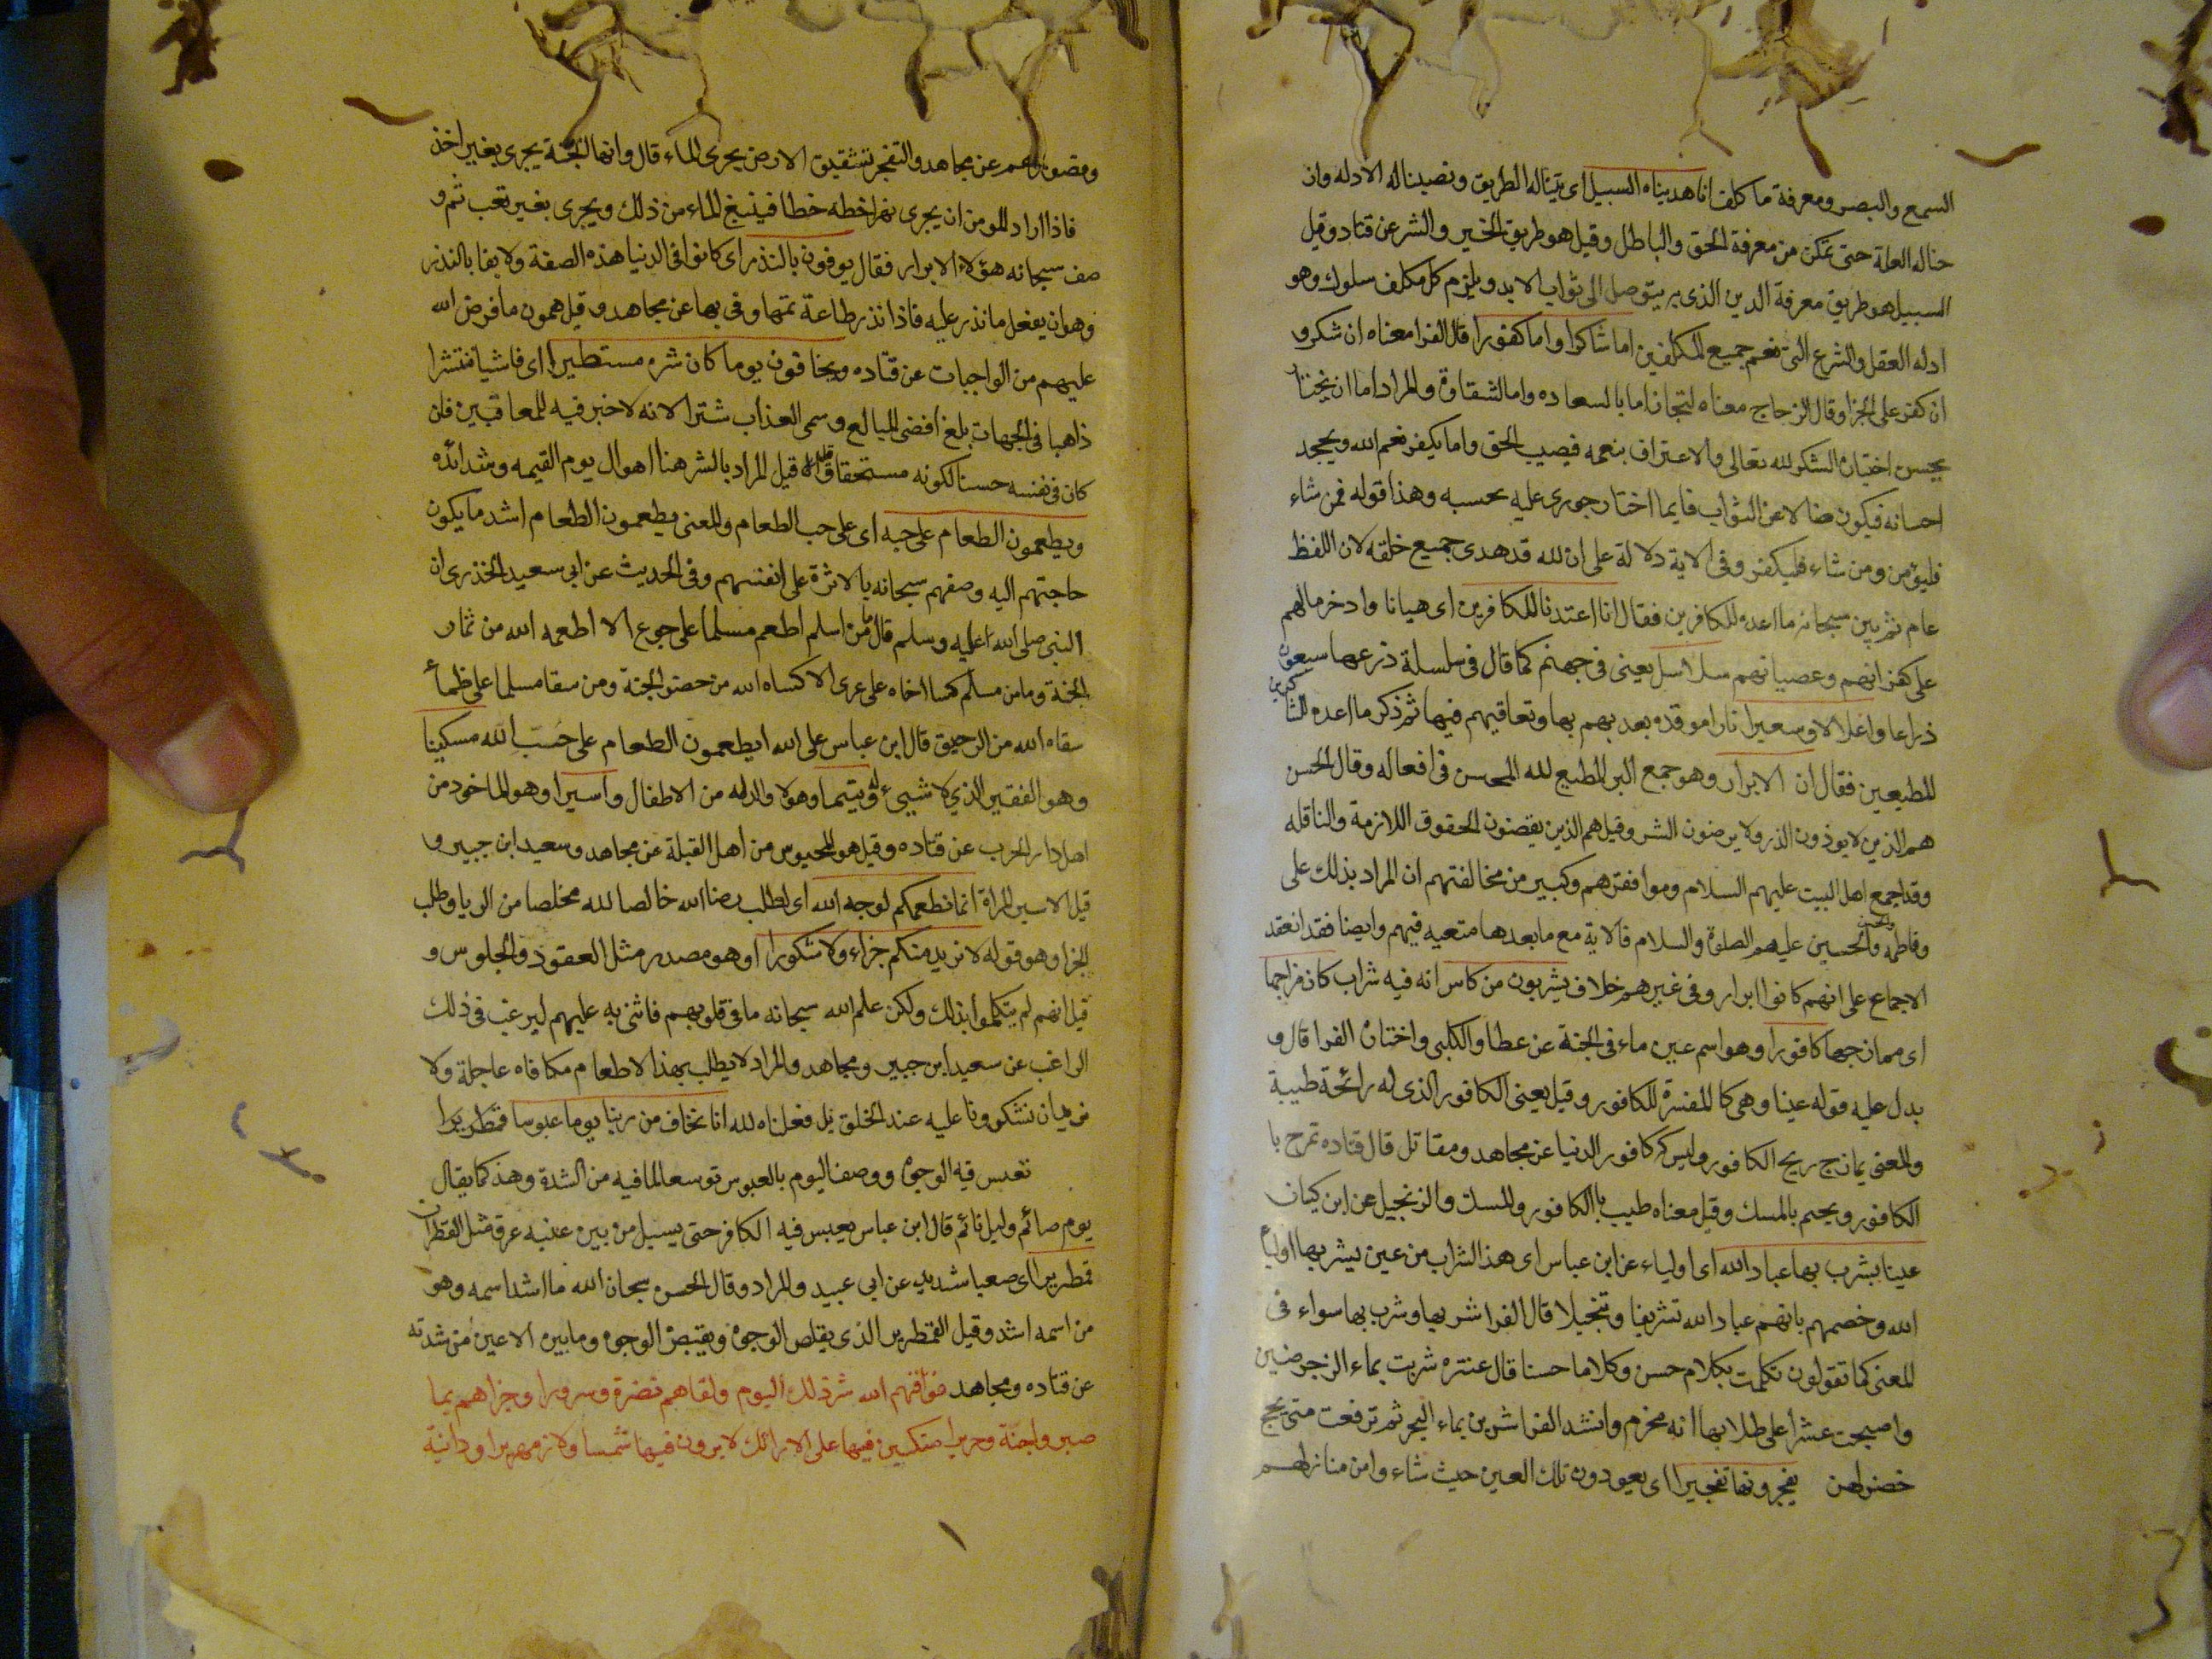 السمع والبصر ومعرفة ما كلف انا هديناه السبيل اى بيناله الطريق ونصبناله الادله وان
حناله العلة حتى تمكن من معرفة الحق والباطل وقيل هو طريق الخير والشر عن قتاد وقيل
السبيل هو طريق معرفة الدين الذى به يتوصل الى ثواب الابد ويلزم كل مكلف سلوك وهو
ادله العقل والشرع التى نعم جميع المكلفين اما شاكرا واما كفورا قال الفرا معناه ان شكر و
ان كفر على الجزا وقال الزجاج معناه لتجازا اما بالسعاده واما الشقاوة والمراد اما ان يختار
بحسن اختيار الشكر لله تعالى والاعتراف بنعمه فيصيب الحق واما يكفر نعم الله ويجحد
احسانه فيكون ضالا عن الثواب فايما اختار جورى عليه بحسبه وهذا قوله فمن شاء
فليؤمن ومن شاء فليكفر وفى الاية دلالة على ان لله قد هدى جميع خلقه لان اللفظ
عام ثم بين سبحانه ما اعده للكافرين فقال انا اعتدنا للكافرين اى هيانا وادخرنا لهم
على كفرانهم وعصيانهم سلاسل يعنى فى جهنم كما قال فى سلسلة ذرعها سبعون
ذراعا واغلالا وسعيرا نارا موقده بعد بهم بها وتعاقبهم فيها ثم ذكر ما اعده للشاكرين
للمطيعين فقال ان الابرار وهو جمع البر المطيع لله المحسن فى افعاله وقال الحسن
هم الذين لا يوذون الذر ولا يرضون الشر وقيل هم الذين يقضون الحقوق اللازمة والناقله
وقد اجمع اهل البيت عليهم السلام وموافقترهم وكبير من مخالفتهم ان المراد بذلك على
وفاطمه والحسن والحسين عليهم الصلوة والسلام فالاية مع ما بعدها متعيه فيهم وايضا فقد انعقد
الاجماع على انهم كانوا ابرار وفى غيرهم خلاف يشربون من كاس انه فيه شراب كان مزاجها
اى ممازجها كافورا وهو اسم عين ماء فى الجنة عن عطا والكلبى واختاره الفرا قال و
يدل عليه قوله عينا وهى كالمفسرة للكافور وقيل يعنى الكافور الذى له رائحة طيبة
والمعنى يمازج ريح الكافور وليس كركافور الدنيا عن مجاهد ومقاتل قال قتاده تمزج با
الكافور ويختم بالمسك وقيل معناه طيب باالكافور والمسك والزنجبيل عن ابن كيان
عينا يشرب بها عباد الله اى اولياء عن ابن عباس اى هذا الشراب من عين يشربها اولياء
الله وخصهم بانهم عباد الله تشريفا وتبجيلا قال الفرا شربها وشرب بها سواء فى
المعنى كما تقولون تكلمت بكلام حسن وكلاما حسنا قال عنتره شربت بماء الزجرضين
واصبحت عشرا على طلابها انه مخرم وانشد الفرا شربن بماء البحر ثم ترفعت متى لجج
خضر لهن يفجرونها تفجيرا اى يعودون تلك العين حيث شاء وامن منازلهم
وقصورهم عن مجاهد والتفجر تشقيق الارض يجرى الماء قال وانهار الجنة يجرى بغير اخذ
فاذا اراد المومن ان يجرى نهرا خطه خطا فينبغ الماء من ذلك ويجرى بغير تعب ثم و
صف سبحانه هؤلاء الابرار فقال يوفون بالنذر اى كانوا فى الدنيا هذه الصفة ولا يفا بالنذر
وهو ان يفعل ما نذر عليه فاذا نذر طاعة تمها وفى بها عن مجاهد وقيل همون ما فرض الله
عليهم من الواجبات عن قتاده ويخافون يوما كان شره مستطيرا اى فاشيا منتشرا
ذاهبا فى الجهات بلغ افضى المبالغ وسمى العذاب شترا لانه لا خير فيه للمعاقبين فان
كان فى نفسه حسنا لكونه مستحقا وقيل المراد بالشر هنا اهوال يوم القيمه وشدائده
ويطعمون الطعام على حبه اى على حب الطعام والمعنى يطعمون الطعام اشد ما يكون
حاجتهم اليه وصفهم سبحانه بالاثرة على انفسهم وفى الحديث عن ابى سعيد الخذرى ان
النبى صلى الله عليه وسلم قال ما من اسلم اطعم مسلما على جوع الا اطعمه الله من ثمار
الجنة وما من مسلم كسا اخاه على عرى الا كساه الله من حضر الجنة ومن سقا مسلما على ظمأ
سقاه الله من الرحيق قال ابن عباس على الله ايطعمون الطعام على حُب الله مسكينا
وهو الفقير الذى لا شيىء له ويتيما وهولا والد له من الاطفال واسيرا وهو الماخود من
اهل دار الحرب عن قتاده وقيل هو المحبوس من اهل القبلة عن مجاهد وسعيد ابن جبير و
قيل الاسير المراة انما نطعمكم لوجه الله اى لطلب رضا الله خالصا لله مخلصا من الريا وطلب
الجزا وهو قوله لا نريد منكم جزاء ولا شكورا وهو مصدر مثل العقود والجلوس و
قيل انهم لم يتكلموا بذلك ولكن علم الله سبحانه ما فى قلوبهم فاثنى به عليهم ليرغب فى ذلك
الراغب عن سعيد ابن جبير ومجاهد والمراد لا يطلب بهذا الاطعام مكافاه عاجلة ولا
نريد ان تشكرونا عليه عند الخلق بل فعلناه لله انا نخاف من ربنا يوما عبوسا قمطريرا
تعبس فيه الوجوه ووصف اليوم بالعبوس توسعا لما فيه من الشدة وهذ كما يقال
يوم صائم وليل نائم قال ابن عباس يعبس فيه الكافر حتى يسيل من بين عينيه عرق مثل القطران
قمطريرا اى صعبا شديدا عن ابى عبيد والمراد وقال الحسن سبحان الله ما اشد اسمه وهو
من اسمه اشد وقيل القمطرير الذى يقلص الوجوه ويقبض الوجوه وما بين الاعين من شدته
عن قتاده ومجاهد فوقهم الله شر ذلك اليوم ولقاهم نضرة وسرورا وجزاهم بما
صبروا جنة وحريرا متكيين فيها على الارائك لا يرون فيها شمسا ولا زمهريرا ودانية